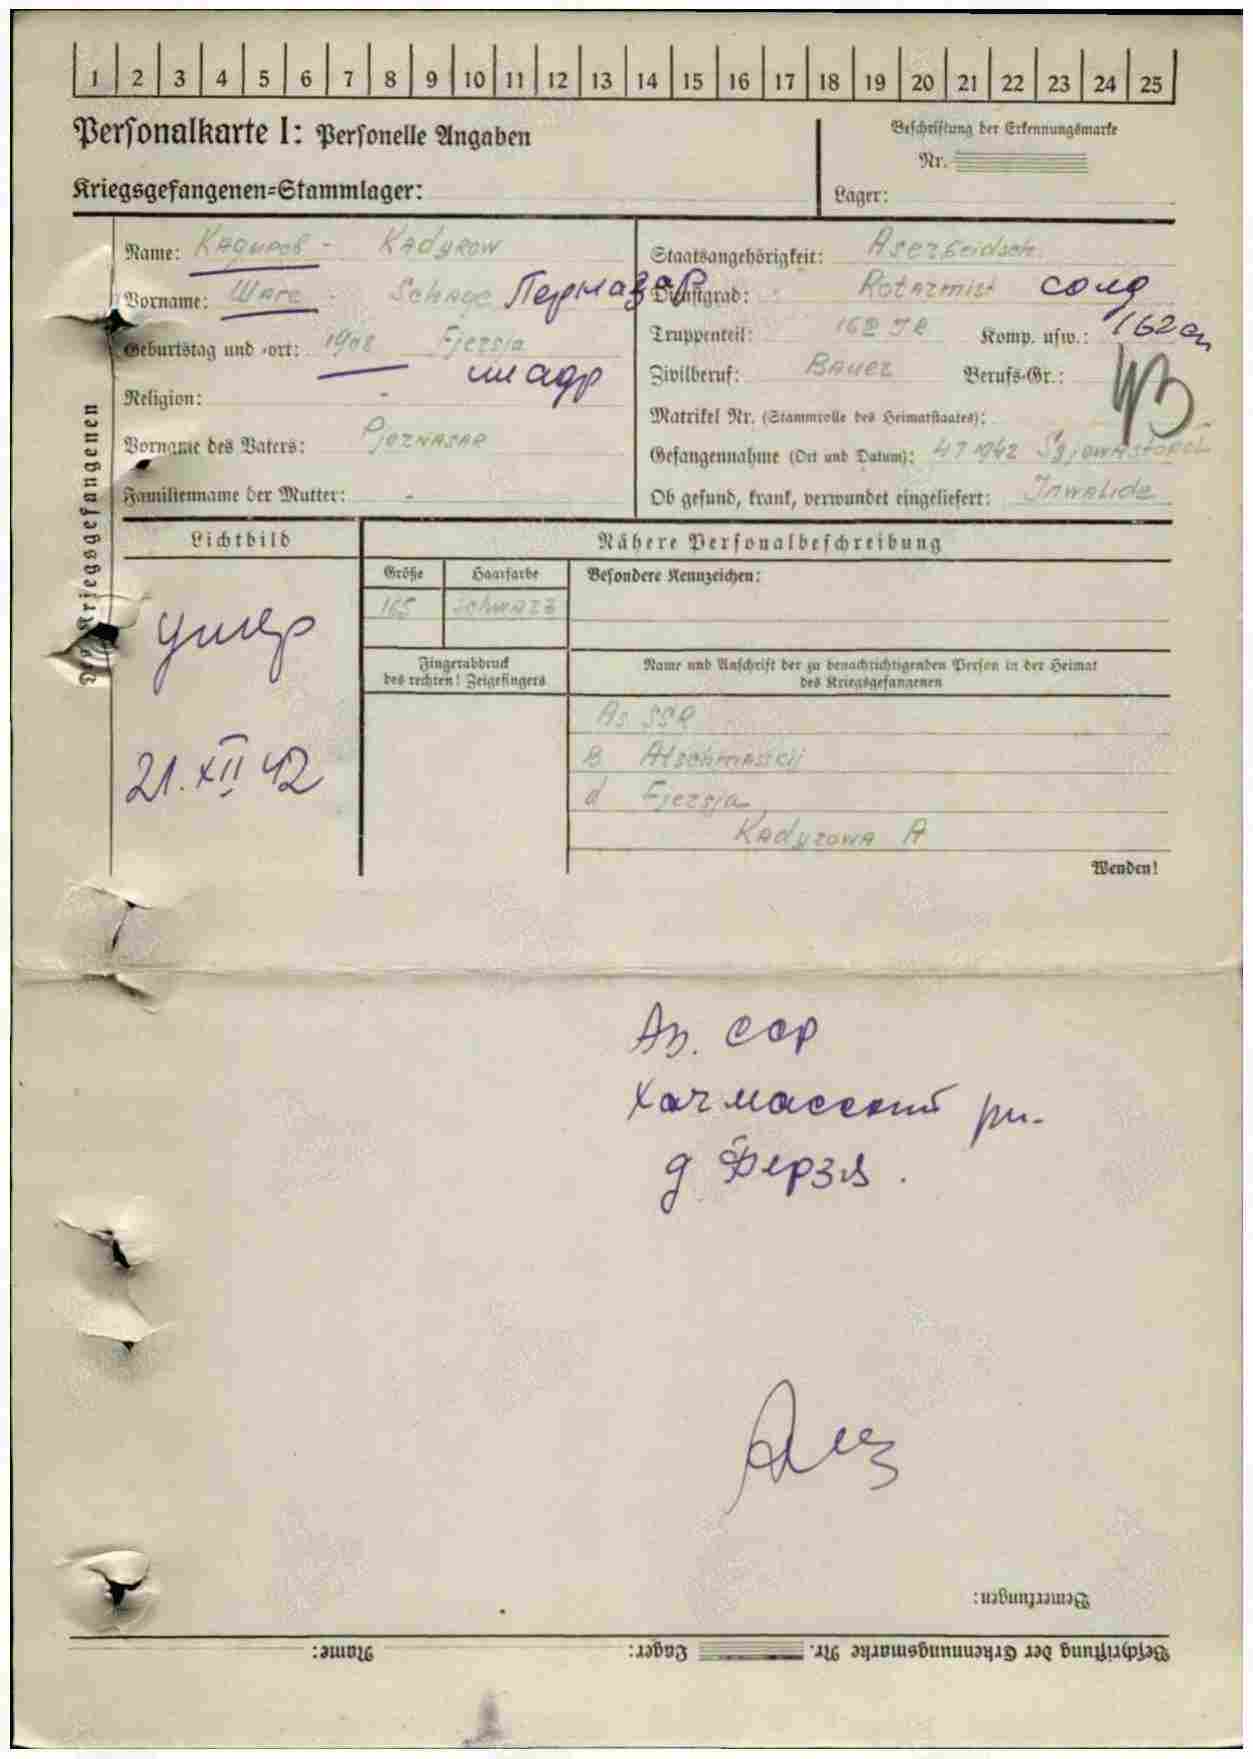 1 2 3 4 5 6 7 8 9 10 11 12 13 14 15 16 17 18 19 20 21 22 23 24 25
Personalkarte I: Personelle Angaben
Kriegsgefangenen-Stammlager:
Beschriftung der Erkennungsmarke
Nr.
Lager:
des Kriegsgefangenen
Name: Кадиров - Kadyrow
Vorname: Шаге - Schage Перназар
Geburtstag und -ort: 1908 Fjersja
Religion: -
Vorname des Vaters: Pjernasar
Familienname der Mutter: -
Staatsangehörigkeit: Aserbeidsch.
Dienstgrad: Rotarmist солд
Truppenteil: 162 IR Komp. usw.: 162 сп
Zivilberuf: Bauer Berufs-Gr.:
Matrikel Nr. (Stammrolle des Heimatstaates):
Gefangennahme (Ort und Datum): 4 7 1942 Sjewastopol
Ob gesund, krank, verwundet eingeliefert: Inwalide
Lichtbild
Nähere Personalbeschreibung
Größe Haarfarbe Besondere Kennzeichen:
165 schwarz
Fingerabdruck
des rechten! Zeigefingers
Name und Anschrift der zu benachrichtigenden Person in der Heimat
des Kriegsgefangenen
умер
21. XII 42
As SSR
B Atschmasskij
d Fjersja
Kadyrowa A
Wenden!
Аз. ССР
Хачмасский рн.
д. Ферзя.
Bemerkungen:
Beschriftung der Erkennungsmarke Nr. Lager: Name: